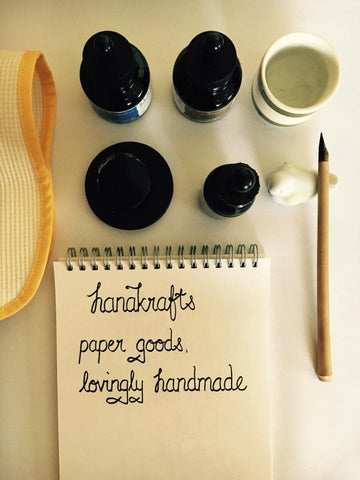 hanakrafts
paper goods,
lovingly handmade